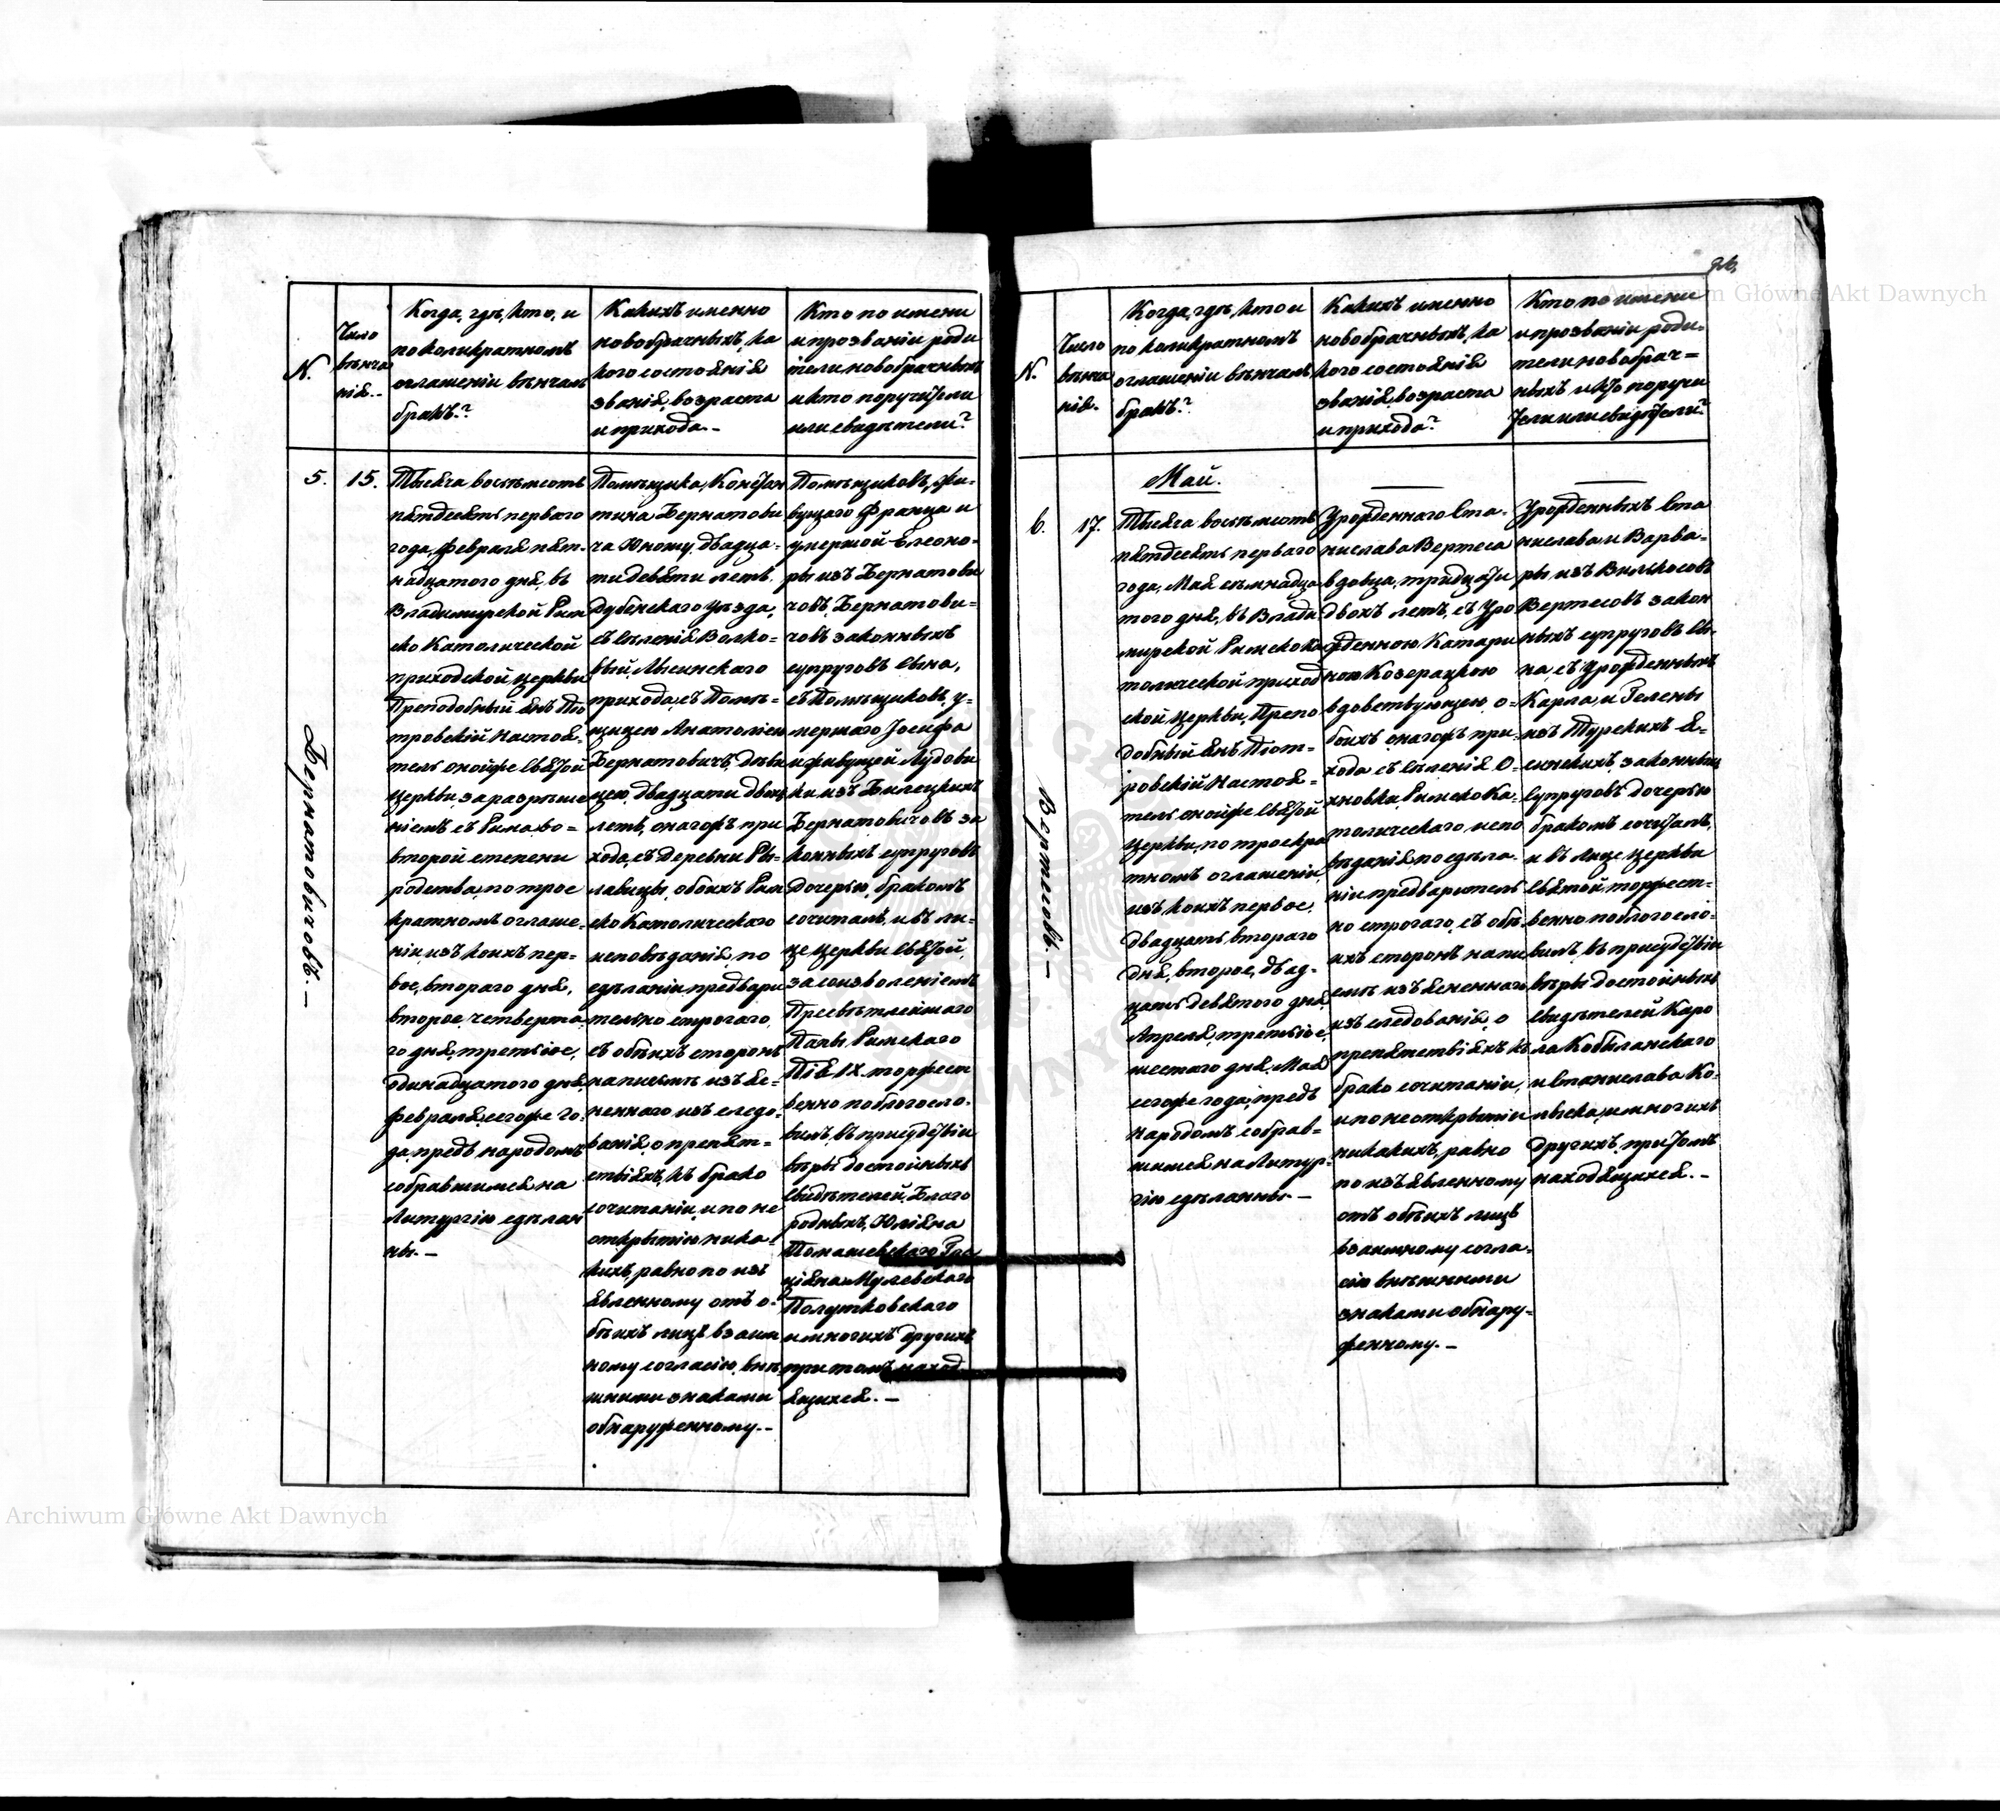 N.
Число
вѣнча
нія.-
Когда, гдѣ, кто, и
по коликратномъ
оглашеніи вѣнчалъ
бракъ.?
Какихъ именно
новобрачныхъ, ка
кого состоянія
званія, возраста
и прихода.-
Кто по имени
и прозваніи роди
тели новобрачныхъ
и кто поручители
или свидѣтели?
Бернатовичовъ.-
5.
15.
Тысяча восемьсотъ
пятдесятъ перваго
года, февраля пят-
надцатаго дня, въ
Владимирской Рим
ско Католической
приходской церкви
Преподобный Янъ Піо
тровскій настоя-
тель онойже святой
церкви, за разрѣше
ніемъ съ Рима, во-
второй степени
родства, по трое
кратномъ оглаше-
ніи, изъ коихъ пер-
вое, втораго дня,
второе, четверта
го дня, третьіое,
одинадцатаго дня
февраля, сегоже го-
да, предъ народомъ
собравшимся на
Литургію сдѣлан
ны.-
Помѣщика, Констан
тина Бернатови
ча Юношу, двадца-
ти девяти летъ,
Дубенскаго уѣзда,
съ селенія Волко-
выи, Лысинскаго
прихода, съ Помѣ-
щицею Анатоліею
Бернатовичъ, дѣви
цею, двадцати двохъ
летъ, онагожъ при
хода, съ деревни Ры-
лавицы, обоихъ Рим
ско Католическаго
исповѣданія, по
сдѣланіи предвари
тельно строгаго,
съ обоихъ сторонъ
написмѣ изъяс-
неннаго изъ следо-
ванія, о препят-
ствіяхъ, къ брако
сочитанію, и по не
открытію ника-
кихъ, равно по изъ
явленному отъ о-
боихъ лицъ взаим
ному согласію, внѣ
шними знаками
обнаруженному.-
Помѣщиковъ, жи-
вущаго Франца и
умершой Елеоно-
ры изъ Бернатови
човъ Бернатови-
човъ законныхъ
супруговъ сына,
съ Помѣщиковъ, у-
мершаго Іосифа
и живущей Лудови
ки изъ Билецкихъ
Бернатовичовъ за
конныхъ супруговъ
дочерью, бракомъ
сочиталъ, и въ ли-
це церкви святой,
за соизволеніемъ
Пресвѣтлейшаго
Папы Римскаго
Пія IX. торжест
венно поблогосло-
вилъ, въ присудствіи
вѣры достойныхъ
свидѣтелей, Благо
родныхъ, Юліяна
Помашевскаго Гра
ціяна Мулевскаго
Полутковскаго
и многихъ другихъ
притомъ наход
ящихся.-
N.
Число
вѣнча
нія.
Когда, гдѣ, кто и
по коликратномъ
оглашеніи вѣнчалъ
бракъ.?
Какихъ именно
новобрачныхъ, ка
кого состоянія
званія, возраста
и прихода?
Кто по имени
и прозваніи роди-
тели новобрач=
ныхъ и кто поручи
тели или свидѣтели?
Вертесовъ.-
6.
17.
Май.
Тысяча восемьсотъ
пятдесятъ перваго
года, Мая семнадца
того дня, въ Влади
мирской Римско Ка
толической приход
ской церкви, Препо
добный Янъ Піот-
ровскій Настоя-
тель онойже святой
церкви, по троекра
тномъ оглашеніи,
изъ коихъ первое,
двадцать втораго
дня, второе, двад-
цать девятого дня
Апреля, третьіое,
шестаго дня, Мая
сегоже года, предъ
народомъ собрав-
шимся на Литур-
гію сдѣланны.-
Урожденнаго Ста-
нислава Вертеса
вдовца, тридцати
двохъ летъ, съ Уро
жденною Катари
ною Козерацкою
вдовствующею, о-
боихъ онагожъ при-
хода съ селенія О-
хновки, Римско Ка-
толическаго испо
вѣданія по сдѣла-
ніи предваритель
но строгаго, съ обо
ихъ сторонъ напи
смѣ изъясненнаго
изъ следованія, о
препятствіяхъ къ
брако сочитанію,
и по неоткрытіи
никакихъ, равно
по изъявленному
отъ обоихъ лицъ
взаимному согла-
сію внѣшними
знаками обнару-
женному.-
Урожденныхъ Ста
нислава и Варва-
ры изъ Вилькосовъ
Вертесовъ закон
ныхъ супруговъ сы-
на, съ Урожденныхъ
Карла, и Гелены
изъ Турскихъ Я-
синскихъ, законныхъ
супруговъ дочерью
бракомъ сочиталъ,
и въ лице церкви
святой, торжест-
венно поблогосло-
вилъ, въ присудствіи
вѣры достойныхъ
свидѣтелей Каро
ла Кобылянскаго
и Станислава Ко-
и многихъ
другихъ, притомъ
находящихся.-
Archiwum Główne Akt Dawnych
Archiwum Główne Akt Dawnych